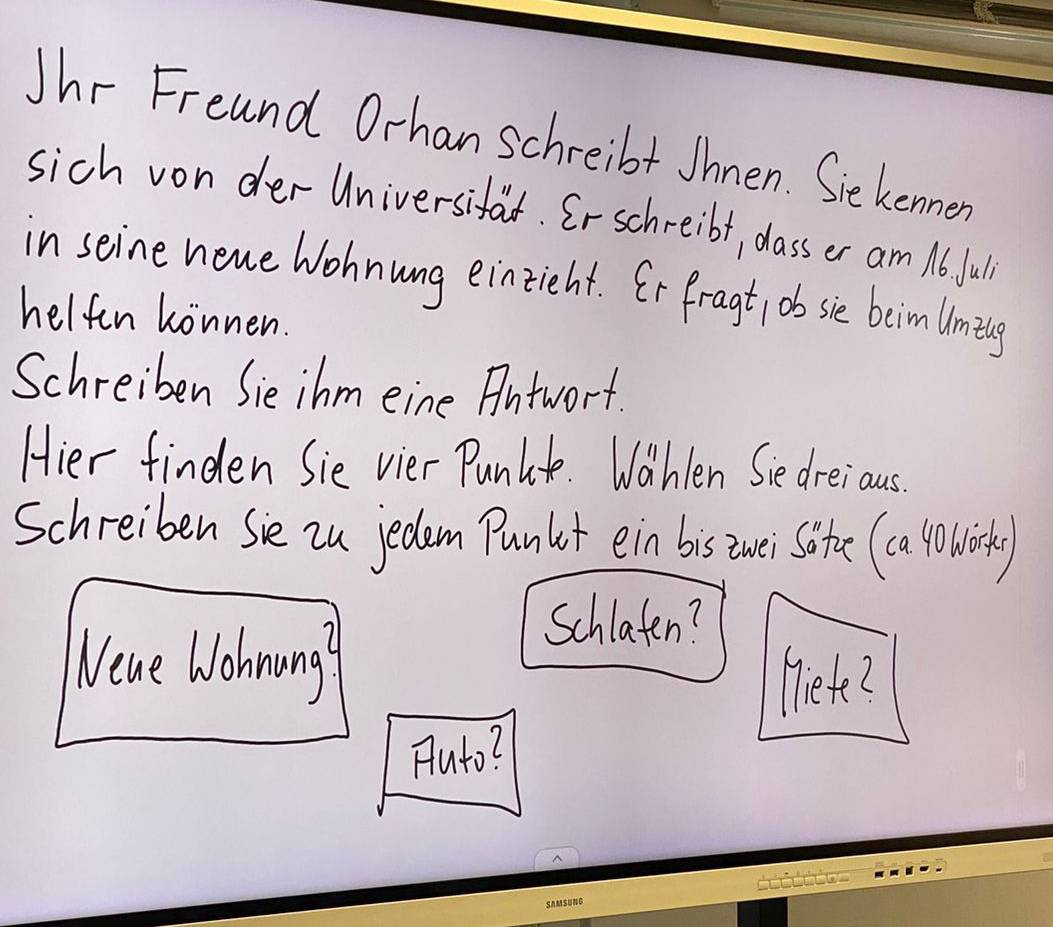 Ihr Freund Orhan schreibt Ihnen. Sie kennen
sich von der Universität. Er schreibt, dass er am 16. Juli
in seine neue Wohnung einzieht. Er fragt, ob sie beim Umzug
helfen können.
Schreiben Sie ihm eine Antwort.
Hier finden Sie vier Punkte. Wählen Sie drei aus.
Schreiben Sie zu jedem Punkt ein bis zwei Sätze (ca. 40 Wörter)
Neue Wohnung?
Schlafen?
Miete?
Auto?
SAMSUNG